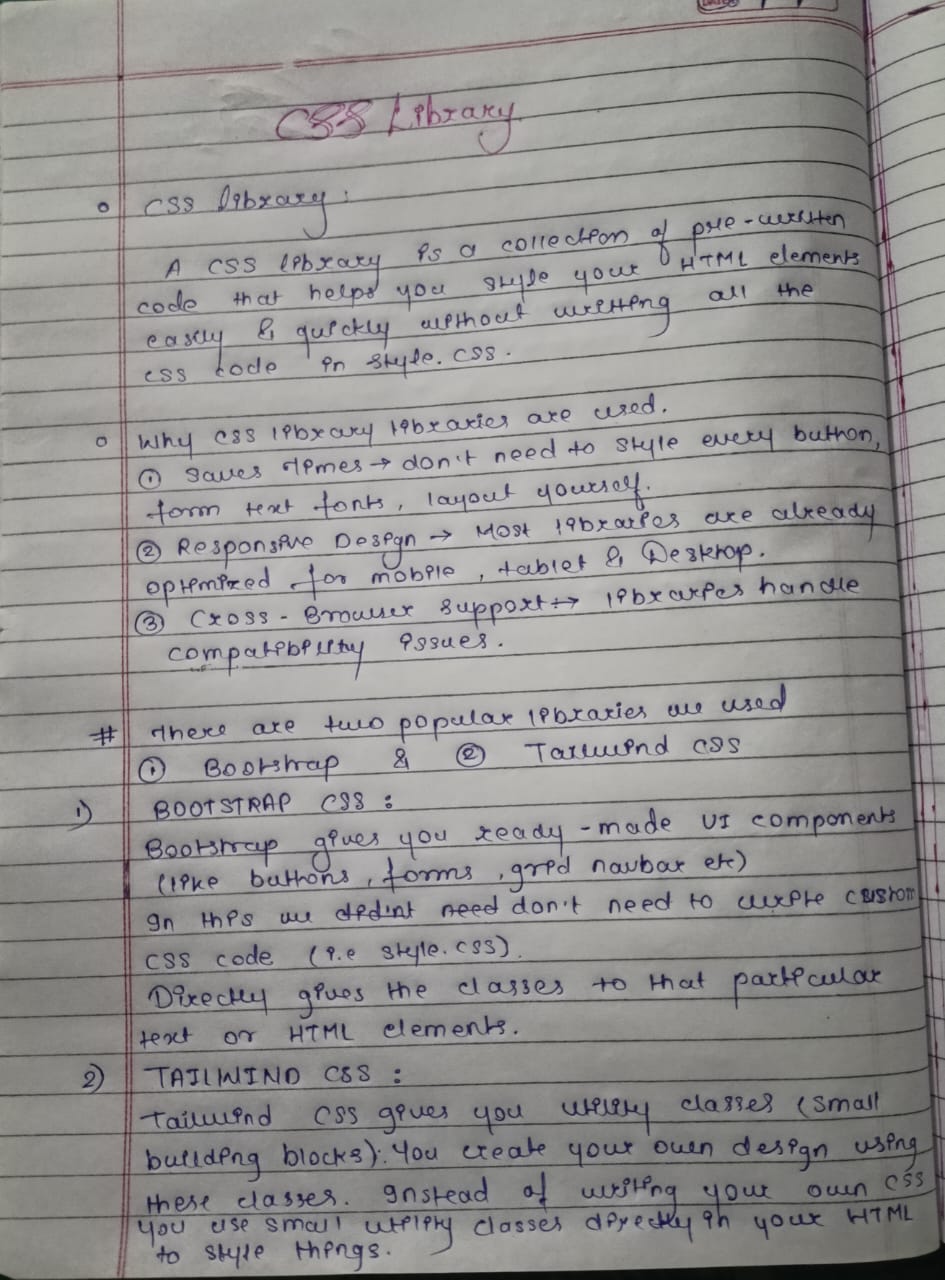 CSS Library
CSS library:
A CSS library is a collection of pre-written
code that helps you style your HTML elements
easily & quickly without writting all the
css code in style.css.
Why css library libraries are used.
① Saves times → don't need to style every button,
form text fonts, layout yourself.
② Responsive Design → Most libraries are already
optimized for mobile, tablet & Desktop.
③ Cross-Browser support → libraries handle
compatibility issues.
# There are two popular libraries we used
① Bootstrap & ② Tailwind CSS
1) BOOTSTRAP CSS:
Bootstrap gives you ready-made UI components
(like buttons, forms, grid navbar etc)
In this we didint need don't need to write custom
CSS code (i.e style.css).
Directly gives the classes to that particular
text or HTML elements.
2) TAILWIND CSS:
Tailwind CSS gives you utility classes (small
building blocks). You create your own design using
these classes. Instead of writing your own CSS
you use small utility classes directly in your HTML
to style things.